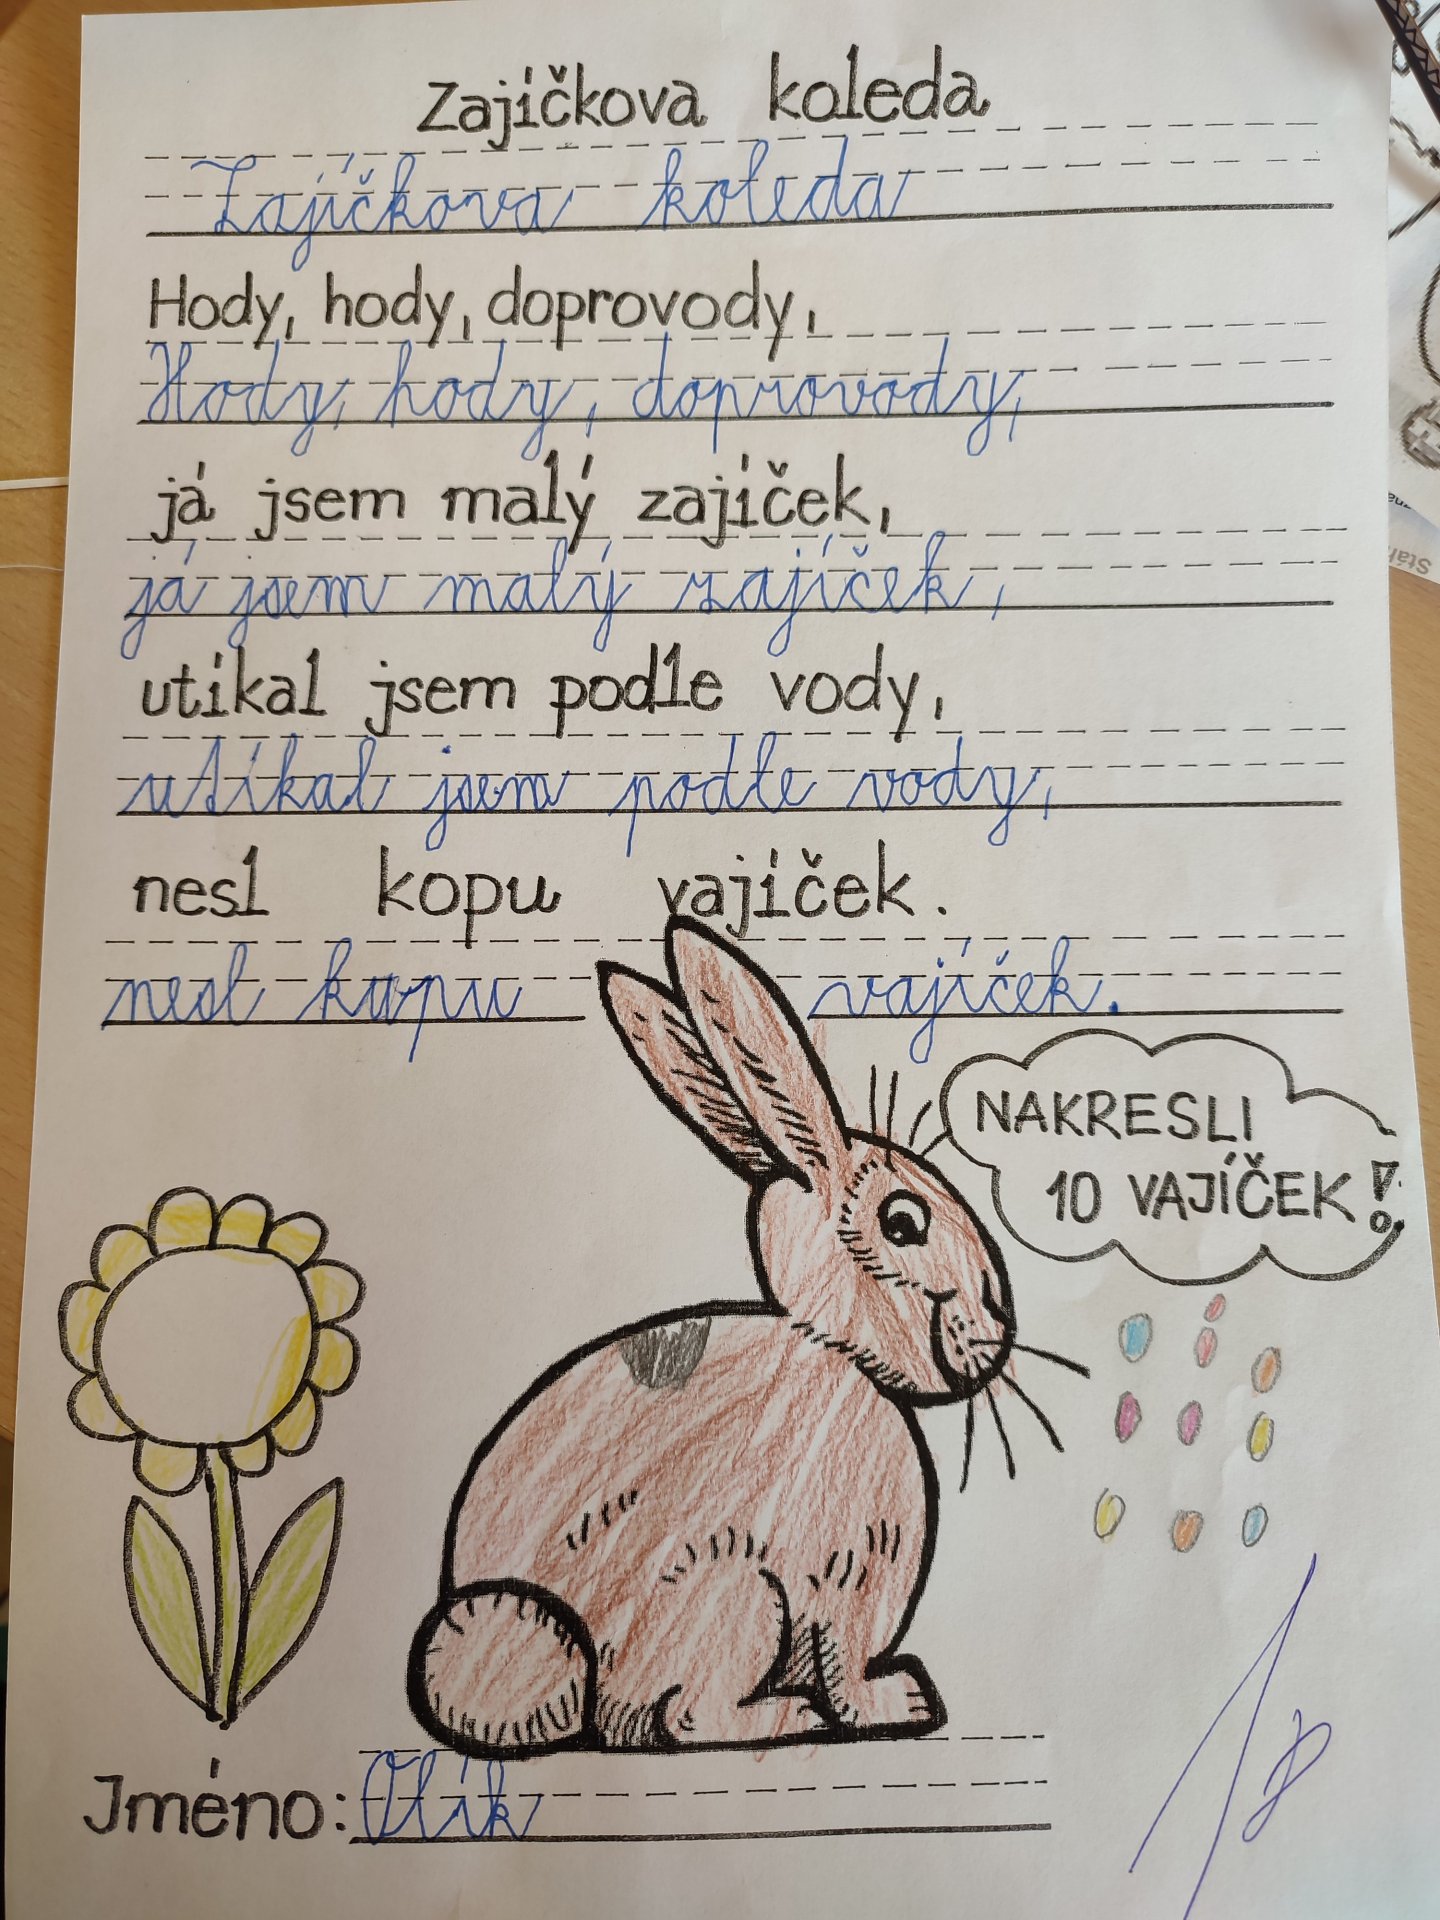 Zajíčkova koleda
Zajíčkova koleda
Hody, hody, doprovody,
Hody, hody, doprovody,
já jsem malý zajíček,
já jsem malý zajíček,
utíkal jsem podle vody,
utíkal jsem podle vody,
nesl kopu vajíček.
nesl kopu vajíček.
NAKRESLI
10 VAJÍČEK!
Jméno: Olík